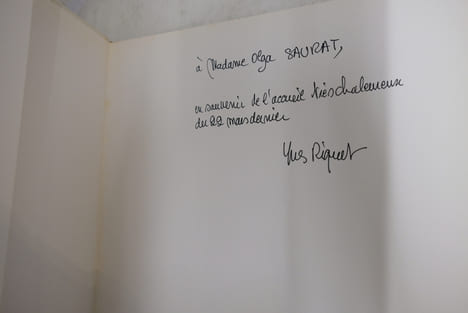 à Madame Olga SAURAT,
en souvenir de l'accueil très chaleureux
du 22 mars dernier
Yves Riquet